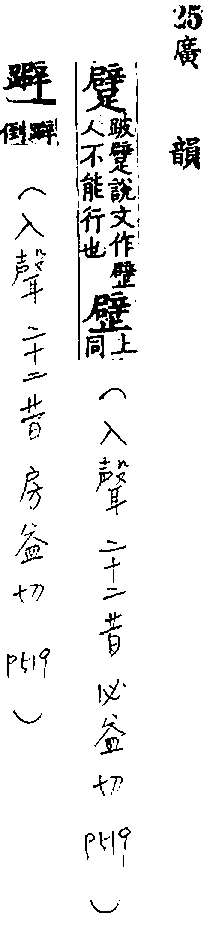 25廣韻
躄 跛躄說文作壁人不能行也 壁 上同 (入聲 二十二昔 必益切 P519)
躃 躃倒 (入聲 二十二昔 房益切 P519)